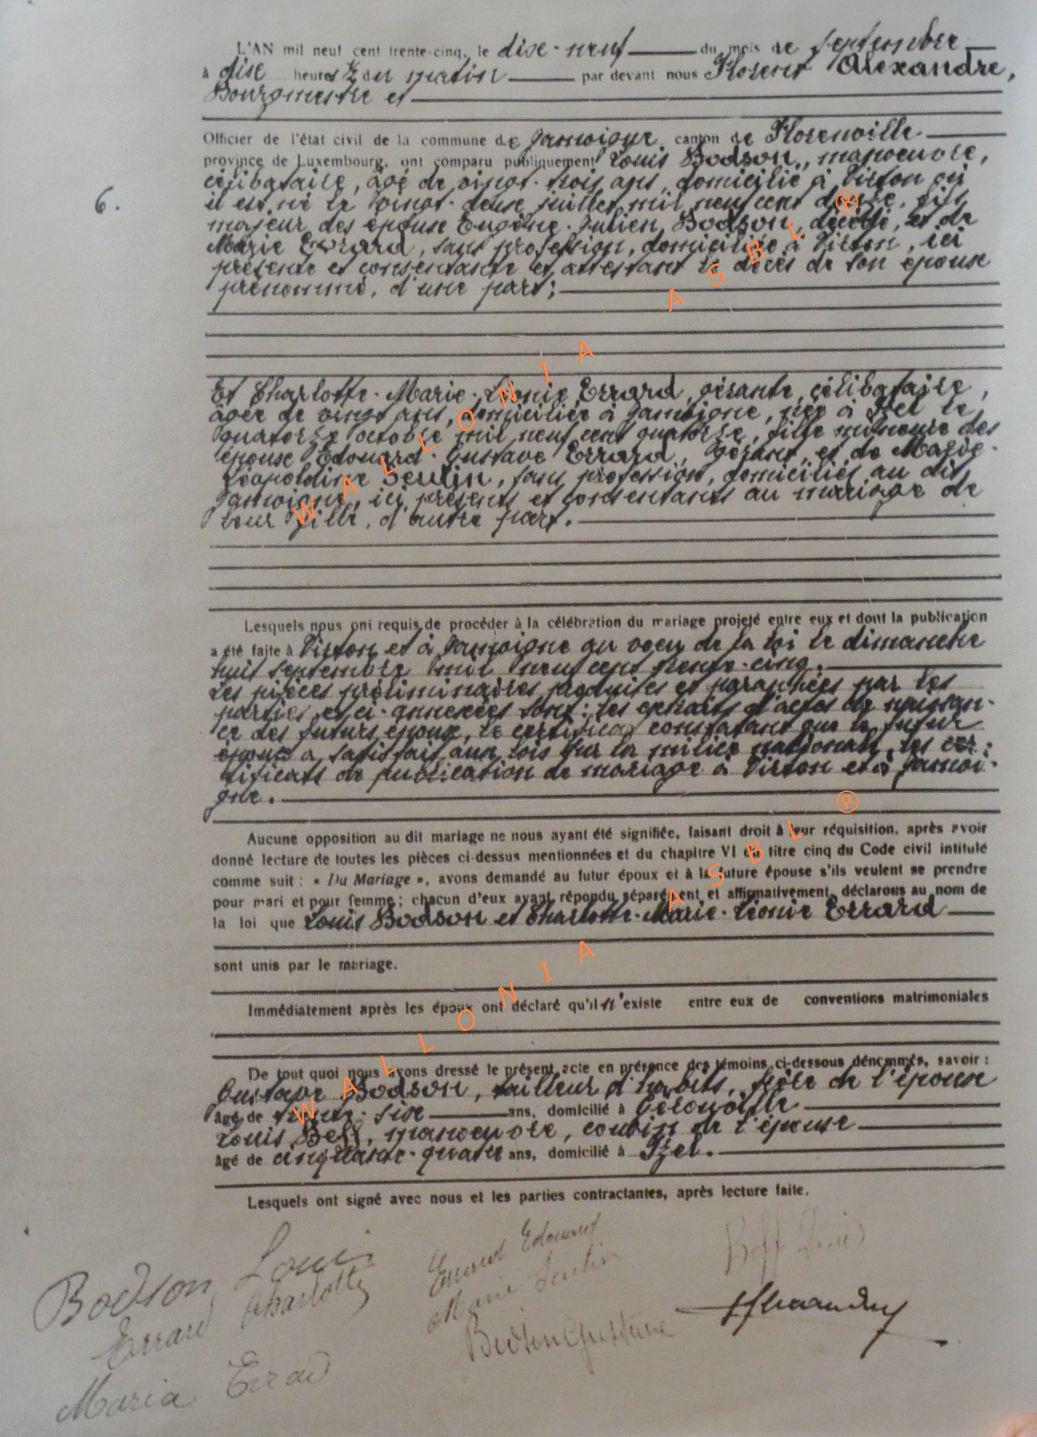 L'AN mil neuf cent trente-cinq, le dise-neuf du mois de septembre
à dise heures ½ du matin par devant nous Florent Alexandre,
Bourgmestre et
Officier de l'état civil de la commune de Jamoigne canton de Florenville
province de Luxembourg, ont comparu publiquement Louis Bodson, manoeuvre,
6.
célibataire, âgé de vingt-trois ans, domicilié à Virton où
il est né le vingt-deuse juillet mil neuf cent douze, fils
majeur des épouse Eugène-Julien Bodson, décédé, et de
Marie Errard, sans profession, domiciliée à Virton, ici
présente et consentante et attestant le décès de son épouse
prénommé, d'une part;
Et Charlotte-Marie-Léonie Errard, gérante, célibataire,
âgée de vingt ans, domiciliée à Jamoigne, née à Izel le
quatorze octobre mil neuf cent quatorze, fille mineure des
épouse Edouard-Gustave Errard, gérant, et de Marie-
Léopoldine Seulin, sans profession, domiciliés au dit
Jamoigne, ici présents et consentants au mariage de
leur fille, d'autre part.
Lesquels nous ont requis de procéder à la célébration du mariage projeté entre eux et dont la publication
a été faite à Virton et à Jamoigne au voeu de la loi le dimanche
huit septembre mil neuf cent trente-cinq.
Les pièces préliminaires produites et paraphées par les
parties et ci-annexées sont: les extraits d'actes de naissan-
ce des futurs épouse, le certificat constatant que le futur
épouse a satisfait aux lois sur la milice nationale, les cer-
tificats de publication de mariage à Virton et à Jamoi-
gne.
Aucune opposition au dit mariage ne nous ayant été signifiée, faisant droit à leur réquisition, après avoir
donné lecture de toutes les pièces ci-dessus mentionnées et du chapitre VI du titre cinq du Code civil intitulé
comme suit : « Du Mariage », avons demandé au futur époux et à la future épouse s'ils veulent se prendre
pour mari et pour femme ; chacun d'eux ayant répondu séparément et affirmativement, déclarons au nom de
la loi que Louis Bodson et Charlotte-Marie-Léonie Errard
sont unis par le mariage.
Immédiatement après les époux ont déclaré qu'il n'existe entre eux de conventions matrimoniales
De tout quoi nous avons dressé le présent acte en présence des témoins ci-dessous dénommés, savoir :
Gustave Bodson, tailleur d'habits, frère de l'épouse
âgé de ans, domicilié à Gérouville
Louis Beff, manoeuvre, cousin de l'épouse
âgé de cinquante-quatre ans, domicilié à Izel.
Lesquels ont signé avec nous et les parties contractantes, après lecture faite.
Bodson Louis
Errard Charlotte
Maria Errad
Errard Edouard
Marie Seulin
Bodson Gustave
Beff Louis
WALLONIA ASBL ®
WALLONIA ASBL ®